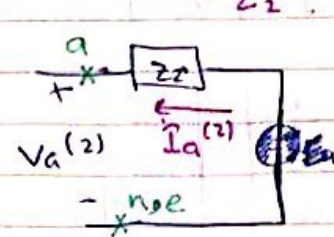 Z₂ .
a
Z₂
+
Iₐ⁽²⁾
Vₐ⁽²⁾
-
n,e